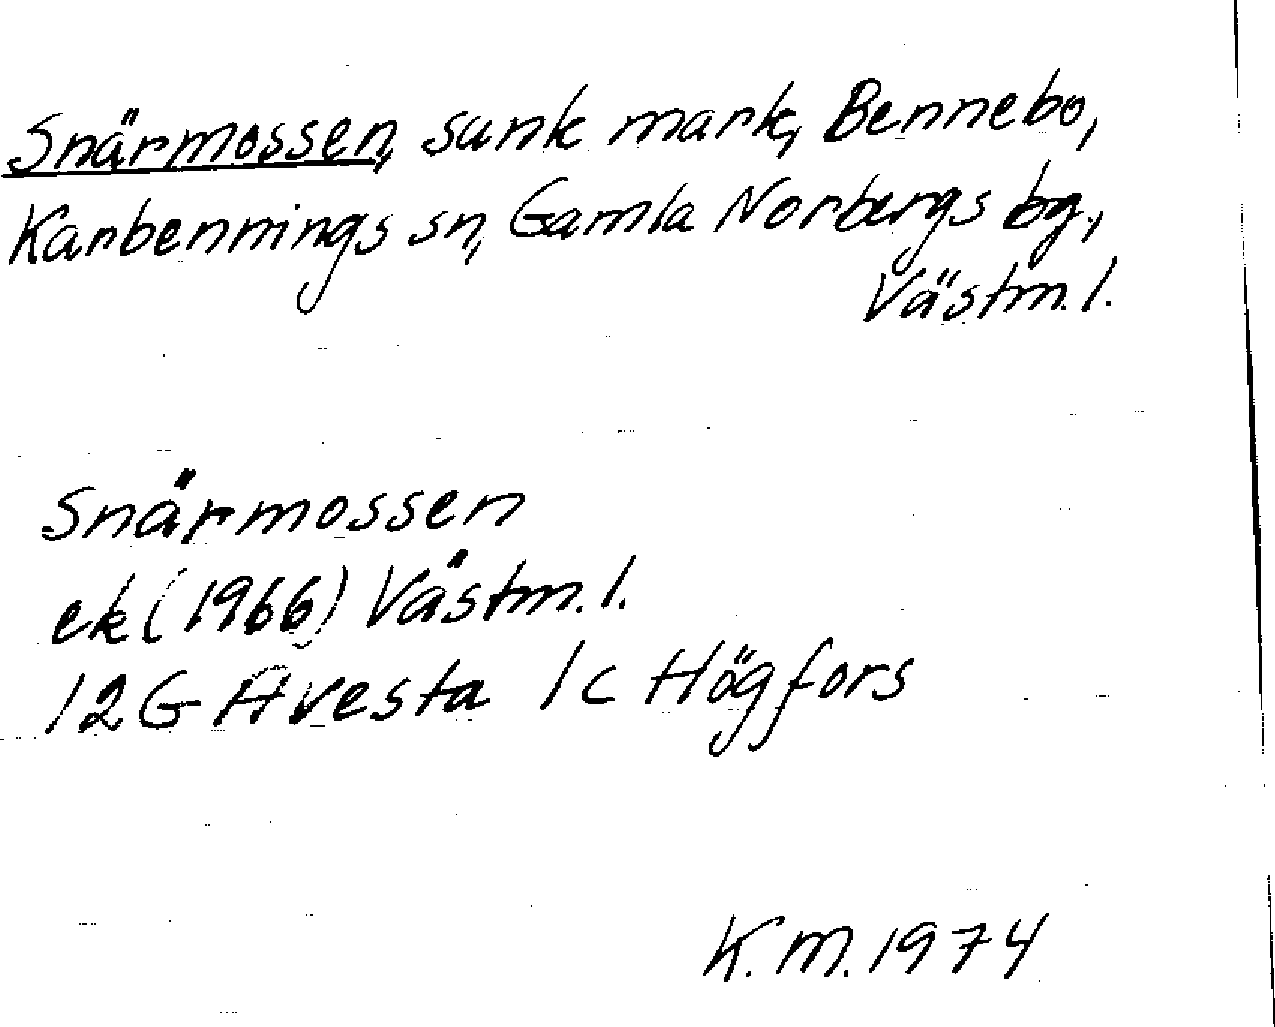 Snärmossen, sank mark, Bennebo,
Karbennings sn, Gamla Norbergs bg.,
Västm. l.
Snärmossen
ek (1966) Västm. l.
12G Avesta 1c Högfors
K. M. 1974